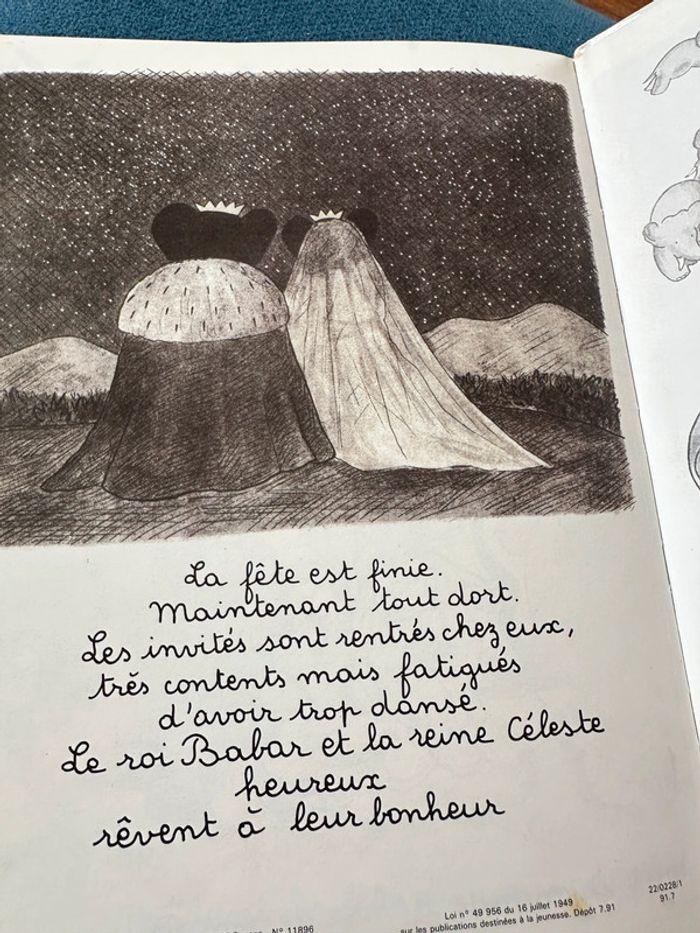 La fête est finie.
Maintenant tout dort.
Les invités sont rentrés chez eux,
très contents mais fatigués
d'avoir trop dansé.
Le roi Babar et la reine Céleste
heureux
rêvent à leur bonheur
22/0228/1
91.7
Loi n° 49 956 du 16 juillet 1949
N° 11896
sur les publications destinées à la jeunesse. Dépôt 7.91